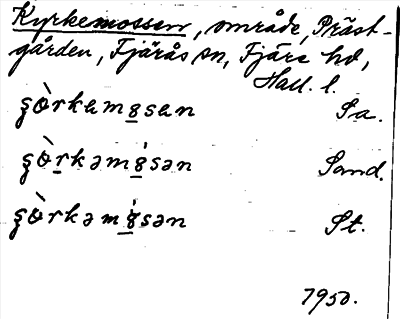 Kyrkemossen, område, Präst-
gården, Fjärås sn, Fjäre hd,
Hall. l.
şòrkam8san Sa.
şòrkəm8̇sən Sand.
şòrkəm8̇sən St.
1950.